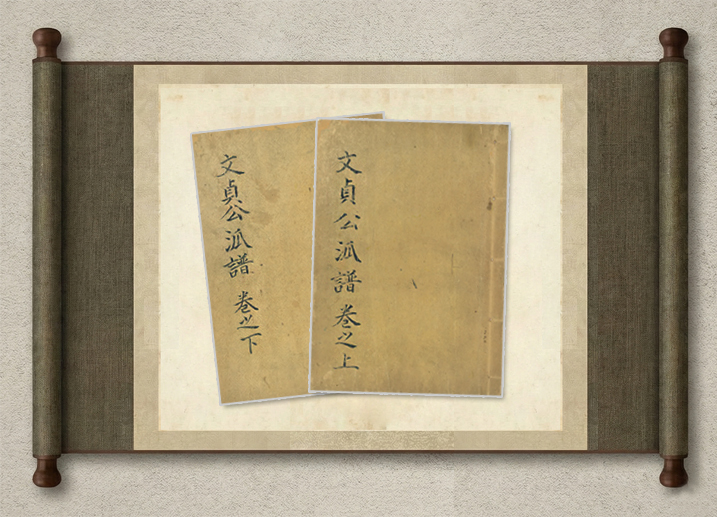 文貞公派譜 卷之上
文貞公派譜 卷之下